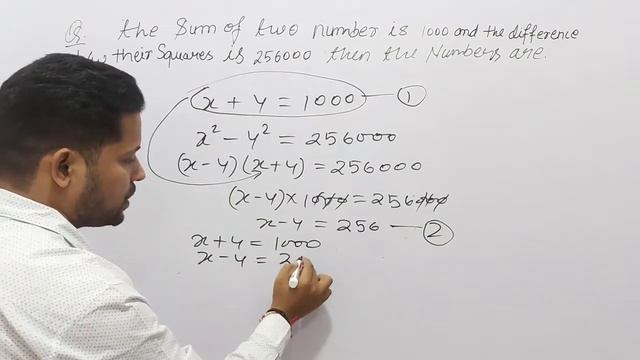 Q. The Sum of two number is 1000 and the difference
their Squares is 256000 then the Numbers are.
x + y = 1000 — 1
x² - y² = 256000
(x - y) (x + y) = 256000
(x - y) × 1000 = 256000
x - y = 256 — 2
x + y = 1000
x - y = 2